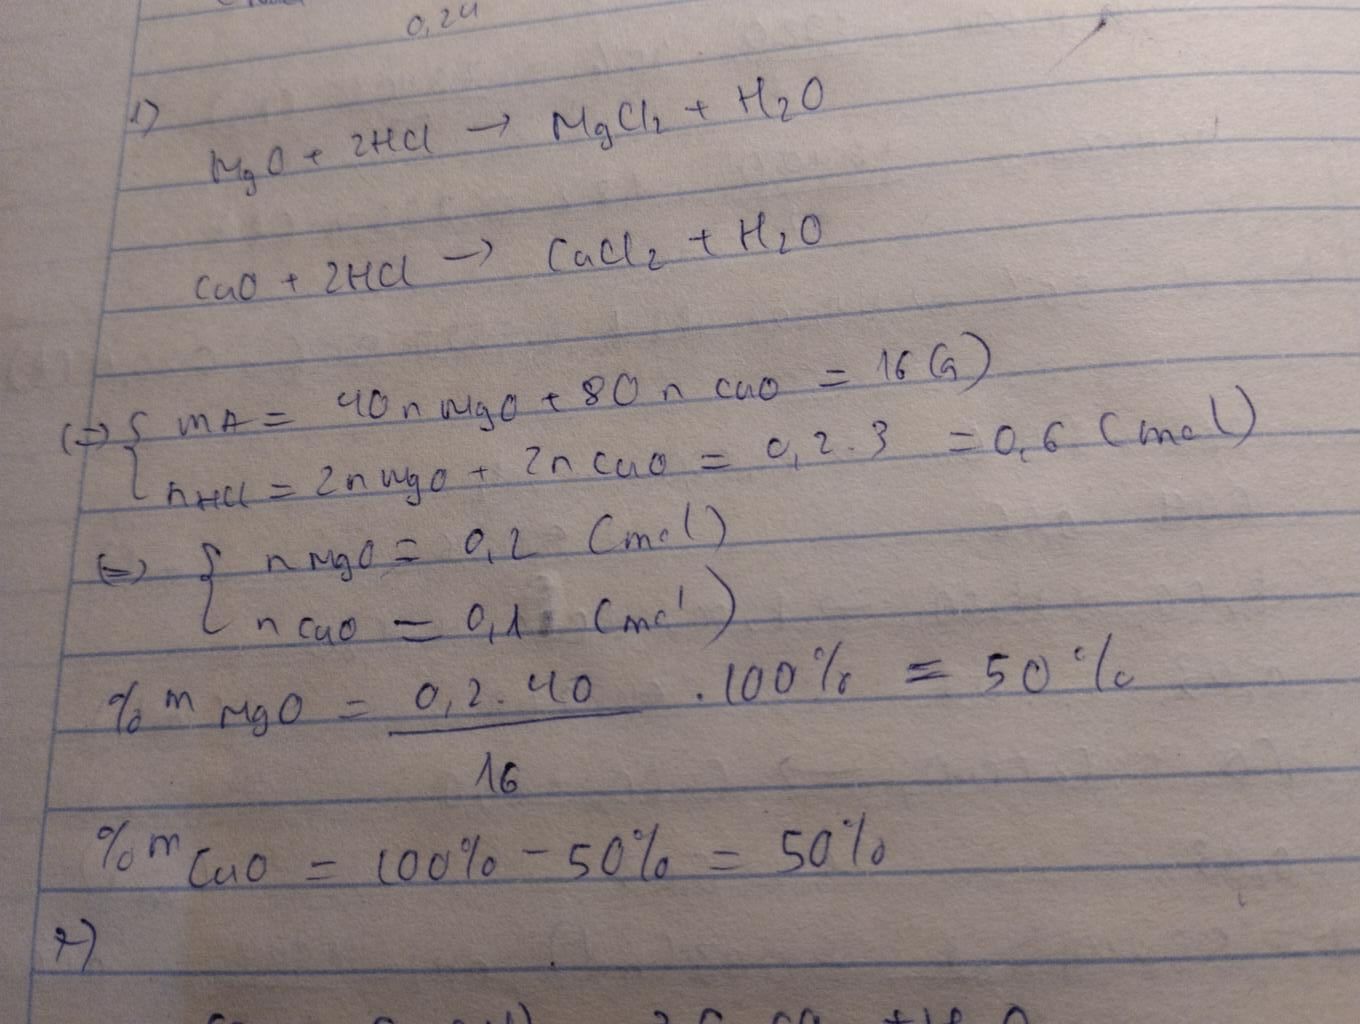 0,24
1)
MgO + 2HCl → MgCl2 + H2O
CuO + 2HCl → CuCl2 + H2O
(=) { mA = 40 n MgO + 80 n CuO = 16 (G)
nHCl = 2n MgO + 2n CuO = 0,2.3 = 0,6 (mol)
(=) { n MgO = 0,2 (mol)
n CuO = 0,1 (mol)
% m MgO = 0,2.40 / 16 . 100% = 50%
% m CuO = 100% - 50% = 50%
2)